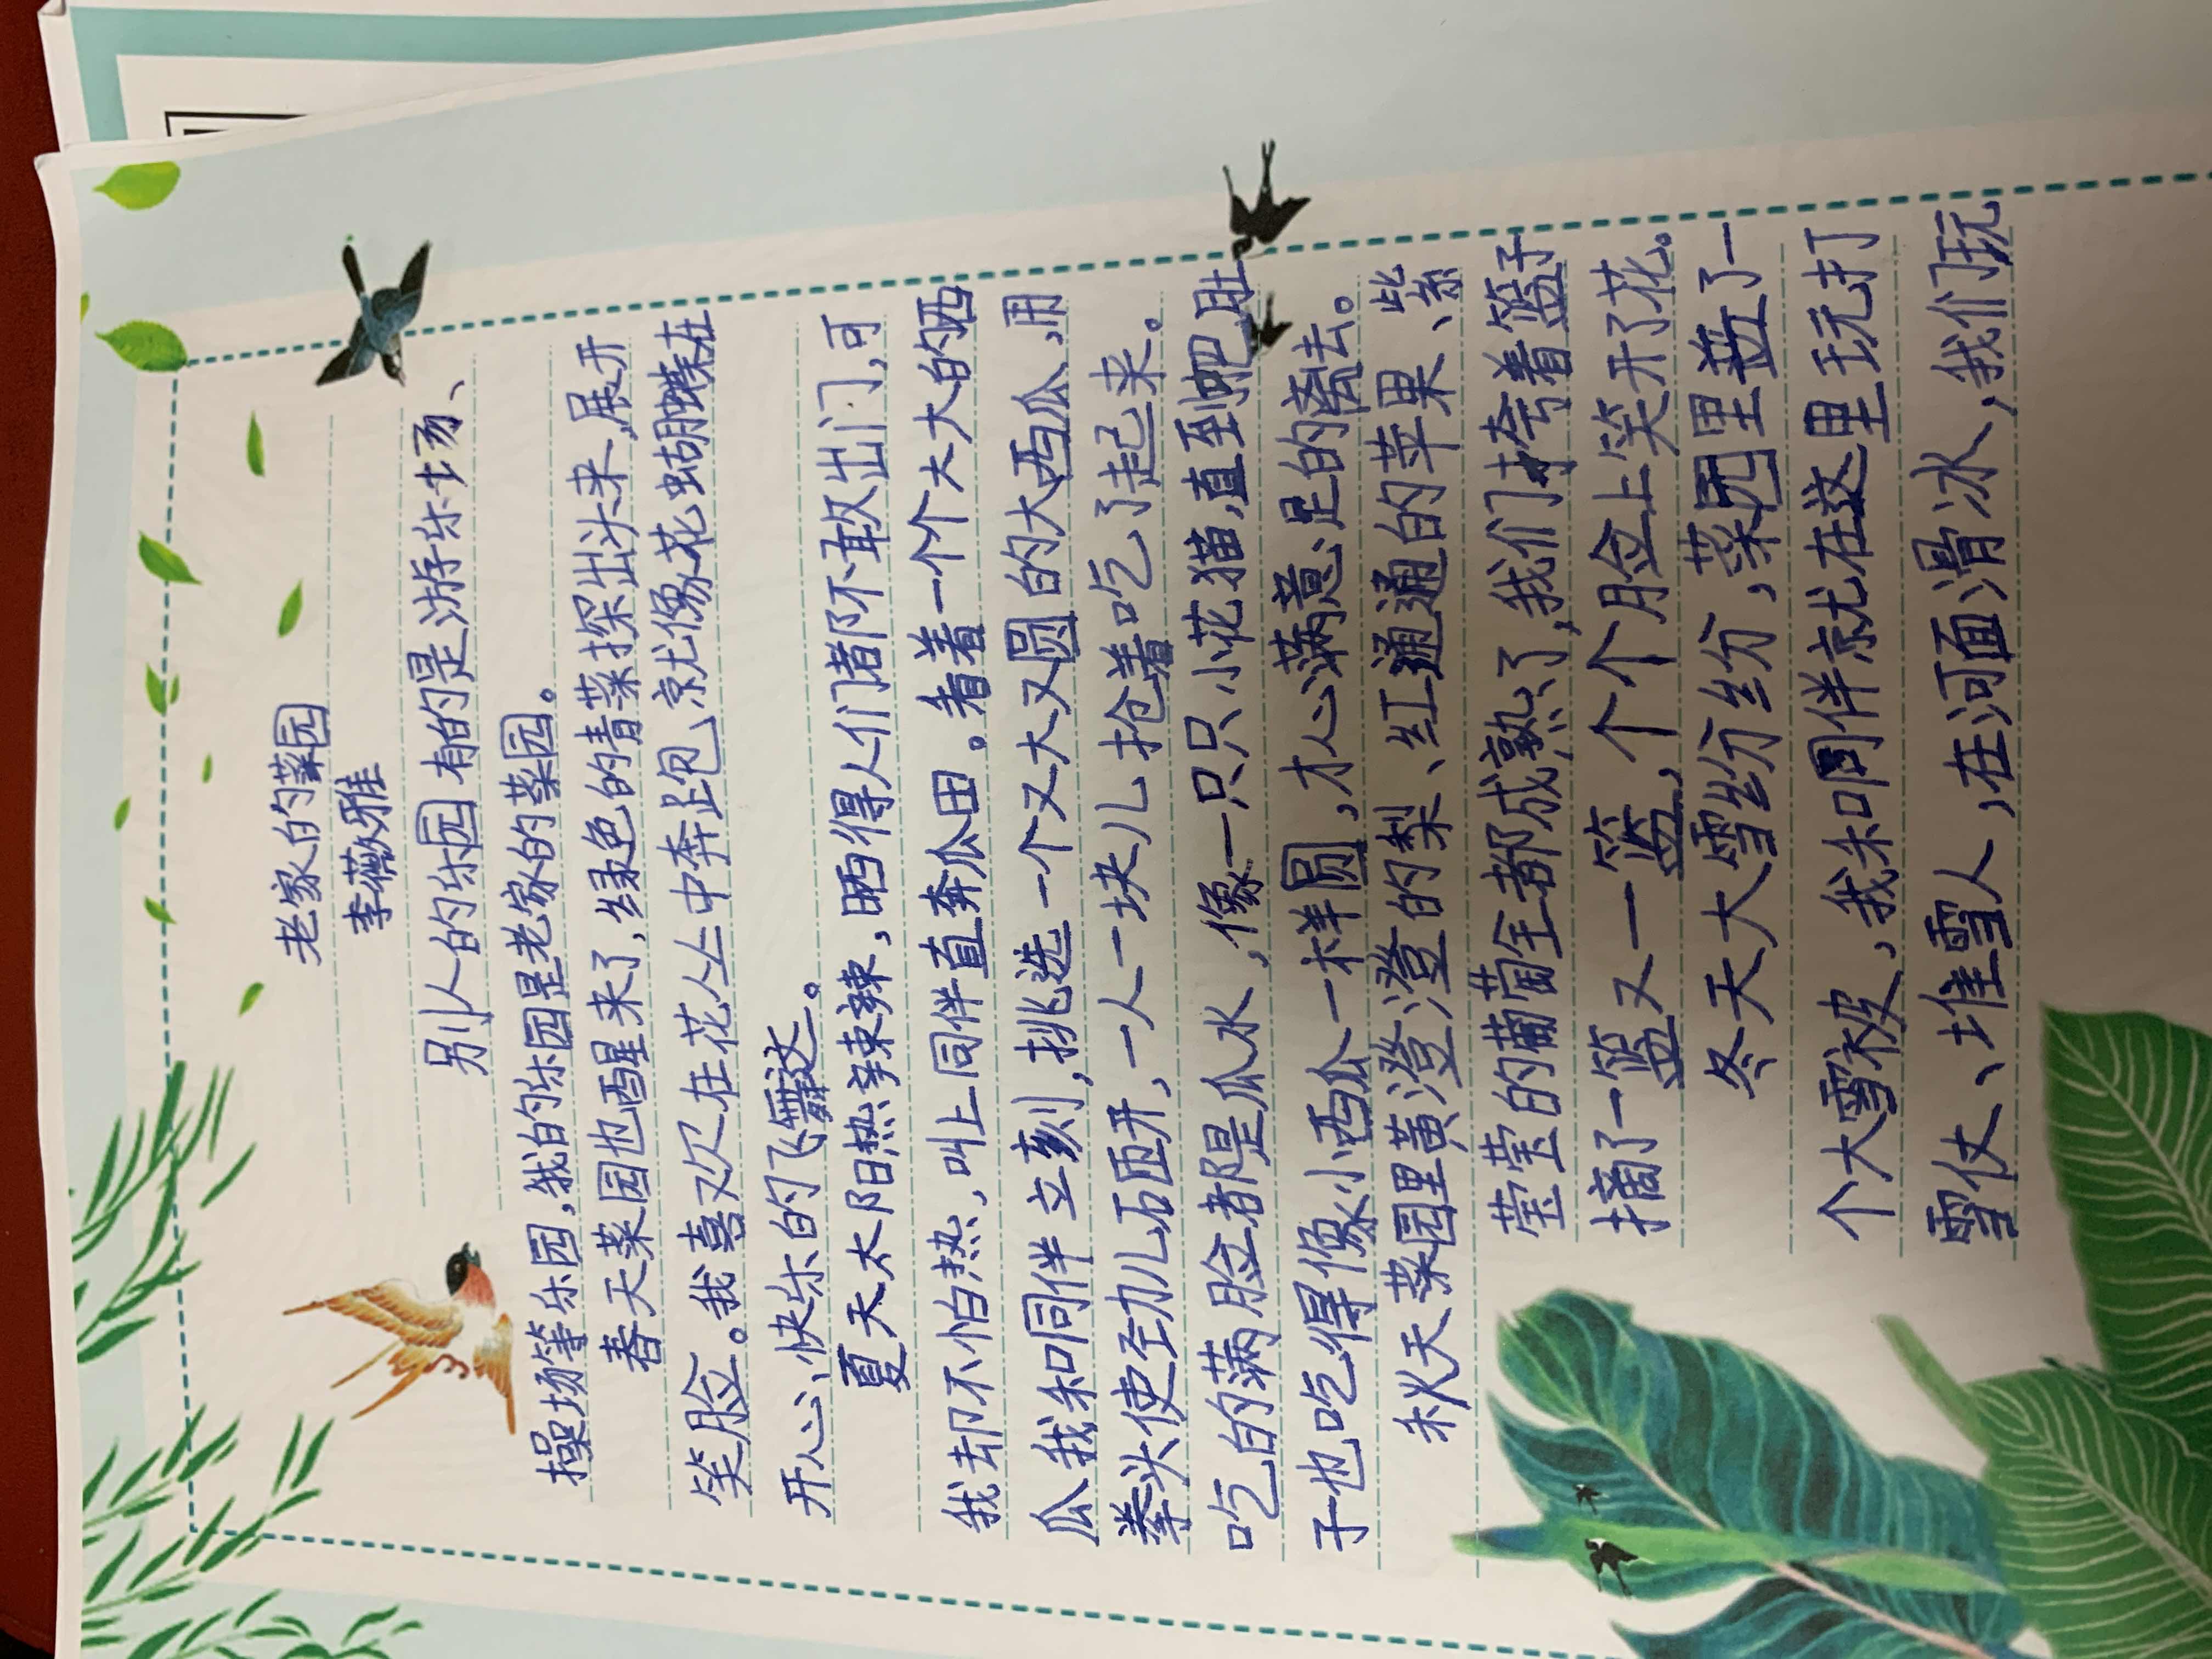 老家的菜园
李薇雅
别人的乐园有的是游乐场、
操场等乐园,我的乐园是老家的菜园。
春天菜园也醒来了,绿色的青菜探出头来,展开
笑脸。我喜欢在花丛中奔跑,就像花蝴蝶在
开心、快乐的飞舞这。
夏天太阳热辣辣,晒得人们都不敢出门,可
我却不怕热,叫上同伴直奔瓜田。看着一个个大大的西
瓜我和同伴立刻,挑选一个又大又圆的大西瓜,用
拳头使劲儿砸开,一人一块儿抢着吃了起来。
吃的满脸都是瓜水,像一只只小花猫,直到吧肚
子也吃得像小西瓜一样圆,才心满意足的离去。
秋天菜园里黄澄澄的梨、红通通的苹果、紫
莹莹的葡萄全都成熟了,我们挎着篮子
摘了一篮又一篮,个个脸上笑开了花。
冬天大雪纷纷,菜园里盖了一
个大雪被,我和同伴就在这里玩打
雪仗、堆雪人,在河面滑冰,我们玩